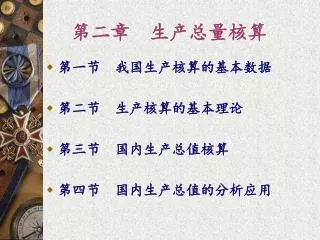 第二章 生产总量核算
第一节 我国生产核算的基本数据
第二节 生产核算的基本理论
第三节 国内生产总值核算
第四节 国内生产总值的分析应用